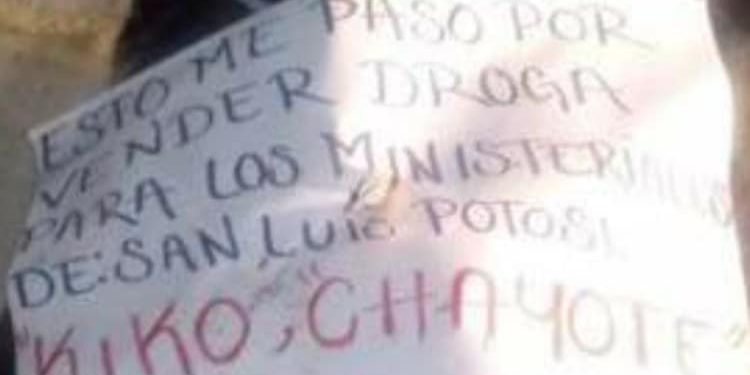 ESTO ME PASO POR
VENDER DROGA
PARA LOS MINISTERIALES
DE: SAN LUIS POTOSI
"KIKO, CHAYOTE"